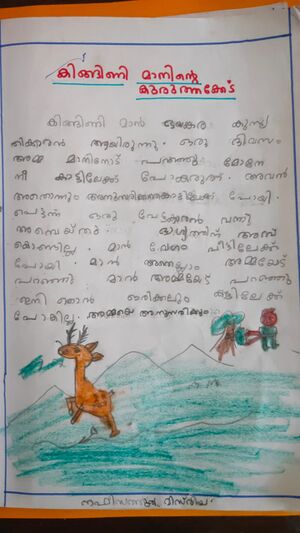 കിങ്ങിണി മാനിന്റെ
കുരുത്തക്കേട്
കിങ്ങിണി മാൻ ഭയങ്കര കുസൃ
തിക്കാരൻ ആയിരുന്നു. ഒരു ദിവസം
അമ്മ മാനിനോട് പറഞ്ഞു മോനേ
നീ കാട്ടിലേക്ക് പോകരുത്. അവൻ
അതൊന്നും അനുസരിക്കാതെ കാട്ടിലേക്ക് പോയി.
പെട്ടന്ന് ഒരു വേട്ടക്കാരൻ വന്നു
അമ്പെയ്തു. ഭാഗ്യത്തിന് അമ്പ്
കൊണ്ടില്ല. മാൻ വേഗം വീട്ടിലേക്ക്
പോയി. മാൻ അതെല്ലാം അമ്മയോട്
പറഞ്ഞു. മാൻ അമ്മയോട് പറഞ്ഞു
ഇനി ഞാൻ ഒരിക്കലും കാട്ടിലേക്ക്
പോകില്ല. അമ്മയെ അനുസരിക്കും